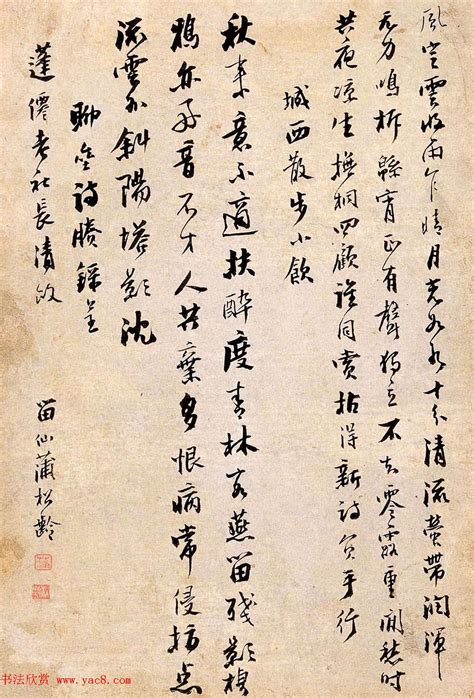 風定雲收雨乍晴月光如水十分清流螢帶潤渾
无力鳴柝縣宵正有聲獨立不知零露重閒愁时
共夜凉生撫桐四顧誰同賞拈得新詩負手行
城西散步小飲
秋来意不適扶醉度青林客燕留殘影棲
鴉亦子音不才人共棄多恨病常侵指点
流雲外斜陽塔影沈
聊齋詩謄錄呈
蓬僊老社長清政
留仙蒲松齡
书法欣赏 www.yac8.com